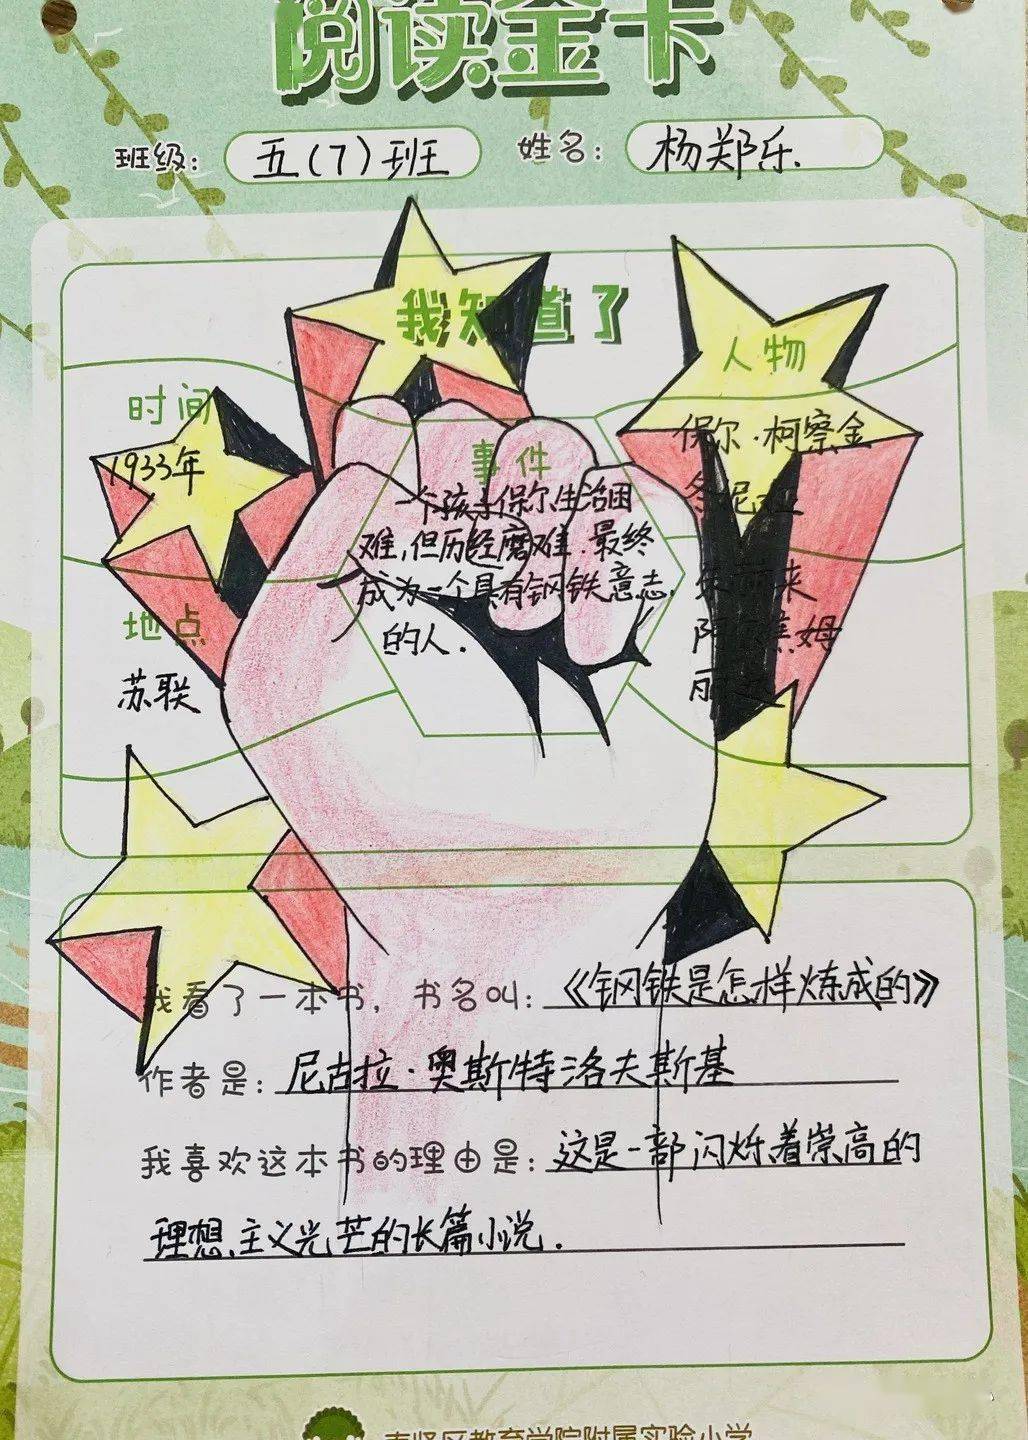 阅读金卡
班级：五(7)班 姓名：杨郑乐.
我知道了
时间
1933年
地点
苏联
事件
一个孩子保尔生活困
难，但历经磨难.最终
成为一个具有钢铁意志,
的人.
人物
保尔·柯察金
冬妮娅
朱赫来
阿尔焦姆
丽达
我看了一本书，书名叫：《钢铁是怎样炼成的》
作者是：尼古拉·奥斯特洛夫斯基
我喜欢这本书的理由是：这是一部闪烁着崇高的
理想主义光芒的长篇小说.
奉贤区教育学院附属实验小学